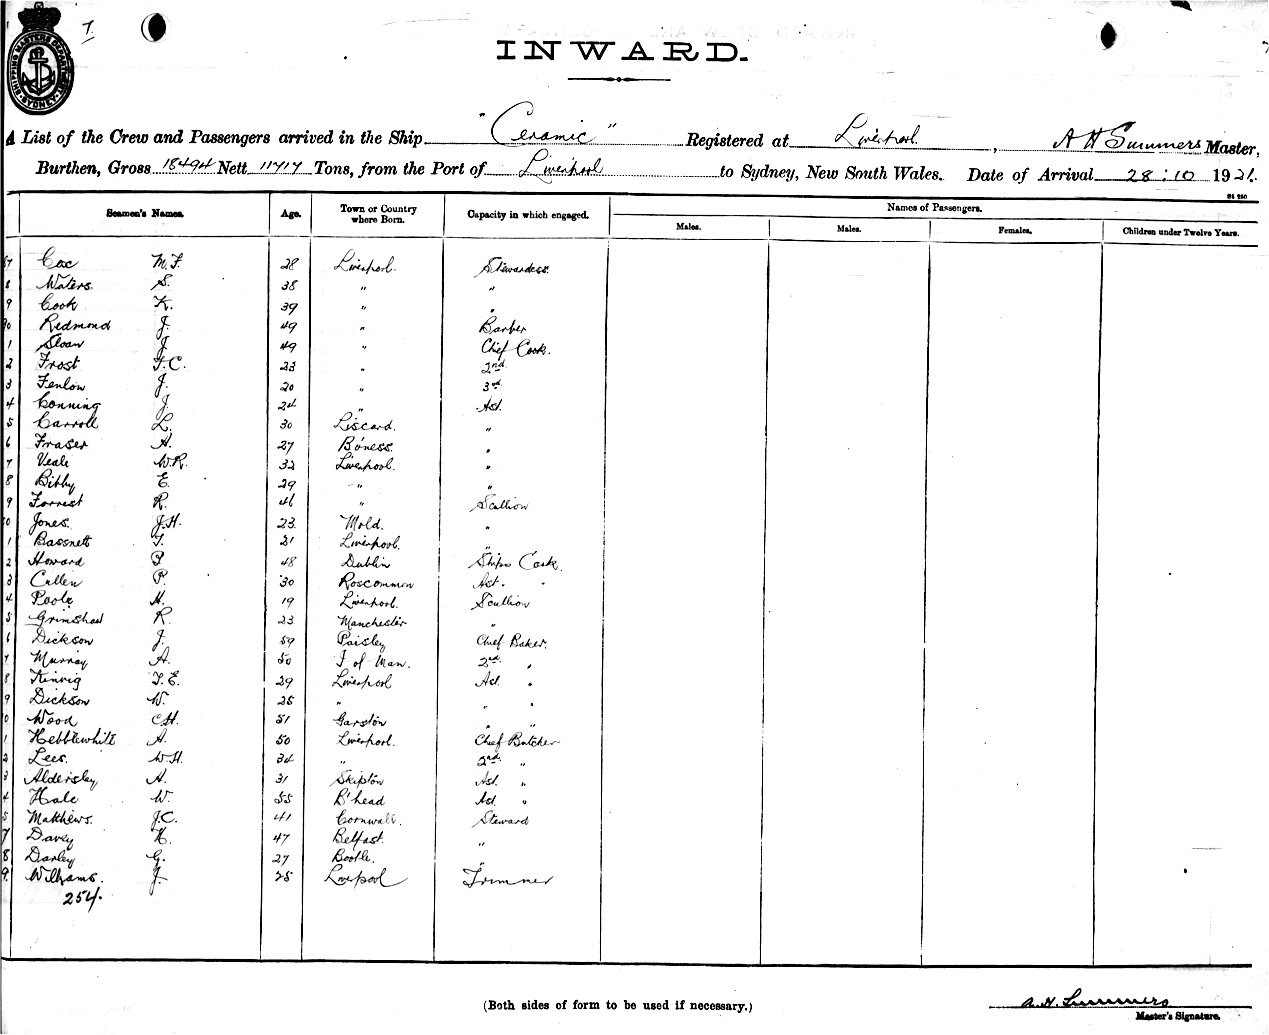 7.
INWARD.
A List of the Crew and Passengers arrived in the Ship "Ceramic" Registered at Liverpool, A H Summers Master,
Burthen, Gross 18494 Nett 11717 Tons, from the Port of Liverpool to Sydney, New South Wales. Date of Arrival 28:10 1921.
Seamen's Names. Age. Town or Country where Born. Capacity in which engaged. Names of Passengers.
Males. Males. Females. Children under Twelve Years.
87 Cox M.F. 28 Liverpool. Stewardess.
8 Waters S. 38 " "
9 Cook K. 39 " "
90 Redmond J. 49 " Barber
1 Sloan J. 49 " Chief Cook.
2 Frost F.C. 23 " 2nd
3 Fenlow J. 20 " 3rd
4 Conning J. 24 " Ast.
5 Carroll L. 30 Liscard. "
6 Fraser A. 27 Boness. "
7 Veale W.R. 32 Liverpool. "
8 Bibby E. 29 " "
9 Forrest R. 46 " Scullion
0 Jones. J.H. 23 Mold. "
1 Bassnett T. 21 Liverpool. "
2 Howard P. 48 Dublin Ships Cook.
3 Cullen P. 30 Roscommon Ast. "
4 Poole H. 19 Liverpool. Scullion
5 Grimshaw R. 23 Manchester "
6 Dickson J. 59 Paisley Chief Baker.
7 Murray A. 50 I of Man. 2nd "
8 Kinvig T.E. 29 Liverpool Ast. "
9 Dickson W. 25 " " "
0 Wood C.H. 51 Garston " "
1 Hebblewhite A. 50 Liverpool. Chief Butcher
2 Lees. W.H. 34 " 2nd "
3 Aldersley A. 31 Skipton Ast. "
4 Hale W. 55 B'head Ast. "
5 Matthews. J.C. 41 Cornwall. Steward
7 Davey H. 47 Belfast. "
8 Darley G. 27 Bootle. "
9. Williams. J. 25 Liverpool Trimmer
254.
(Both sides of form to be used if necessary.)
A. H. Summers
Master's Signature.